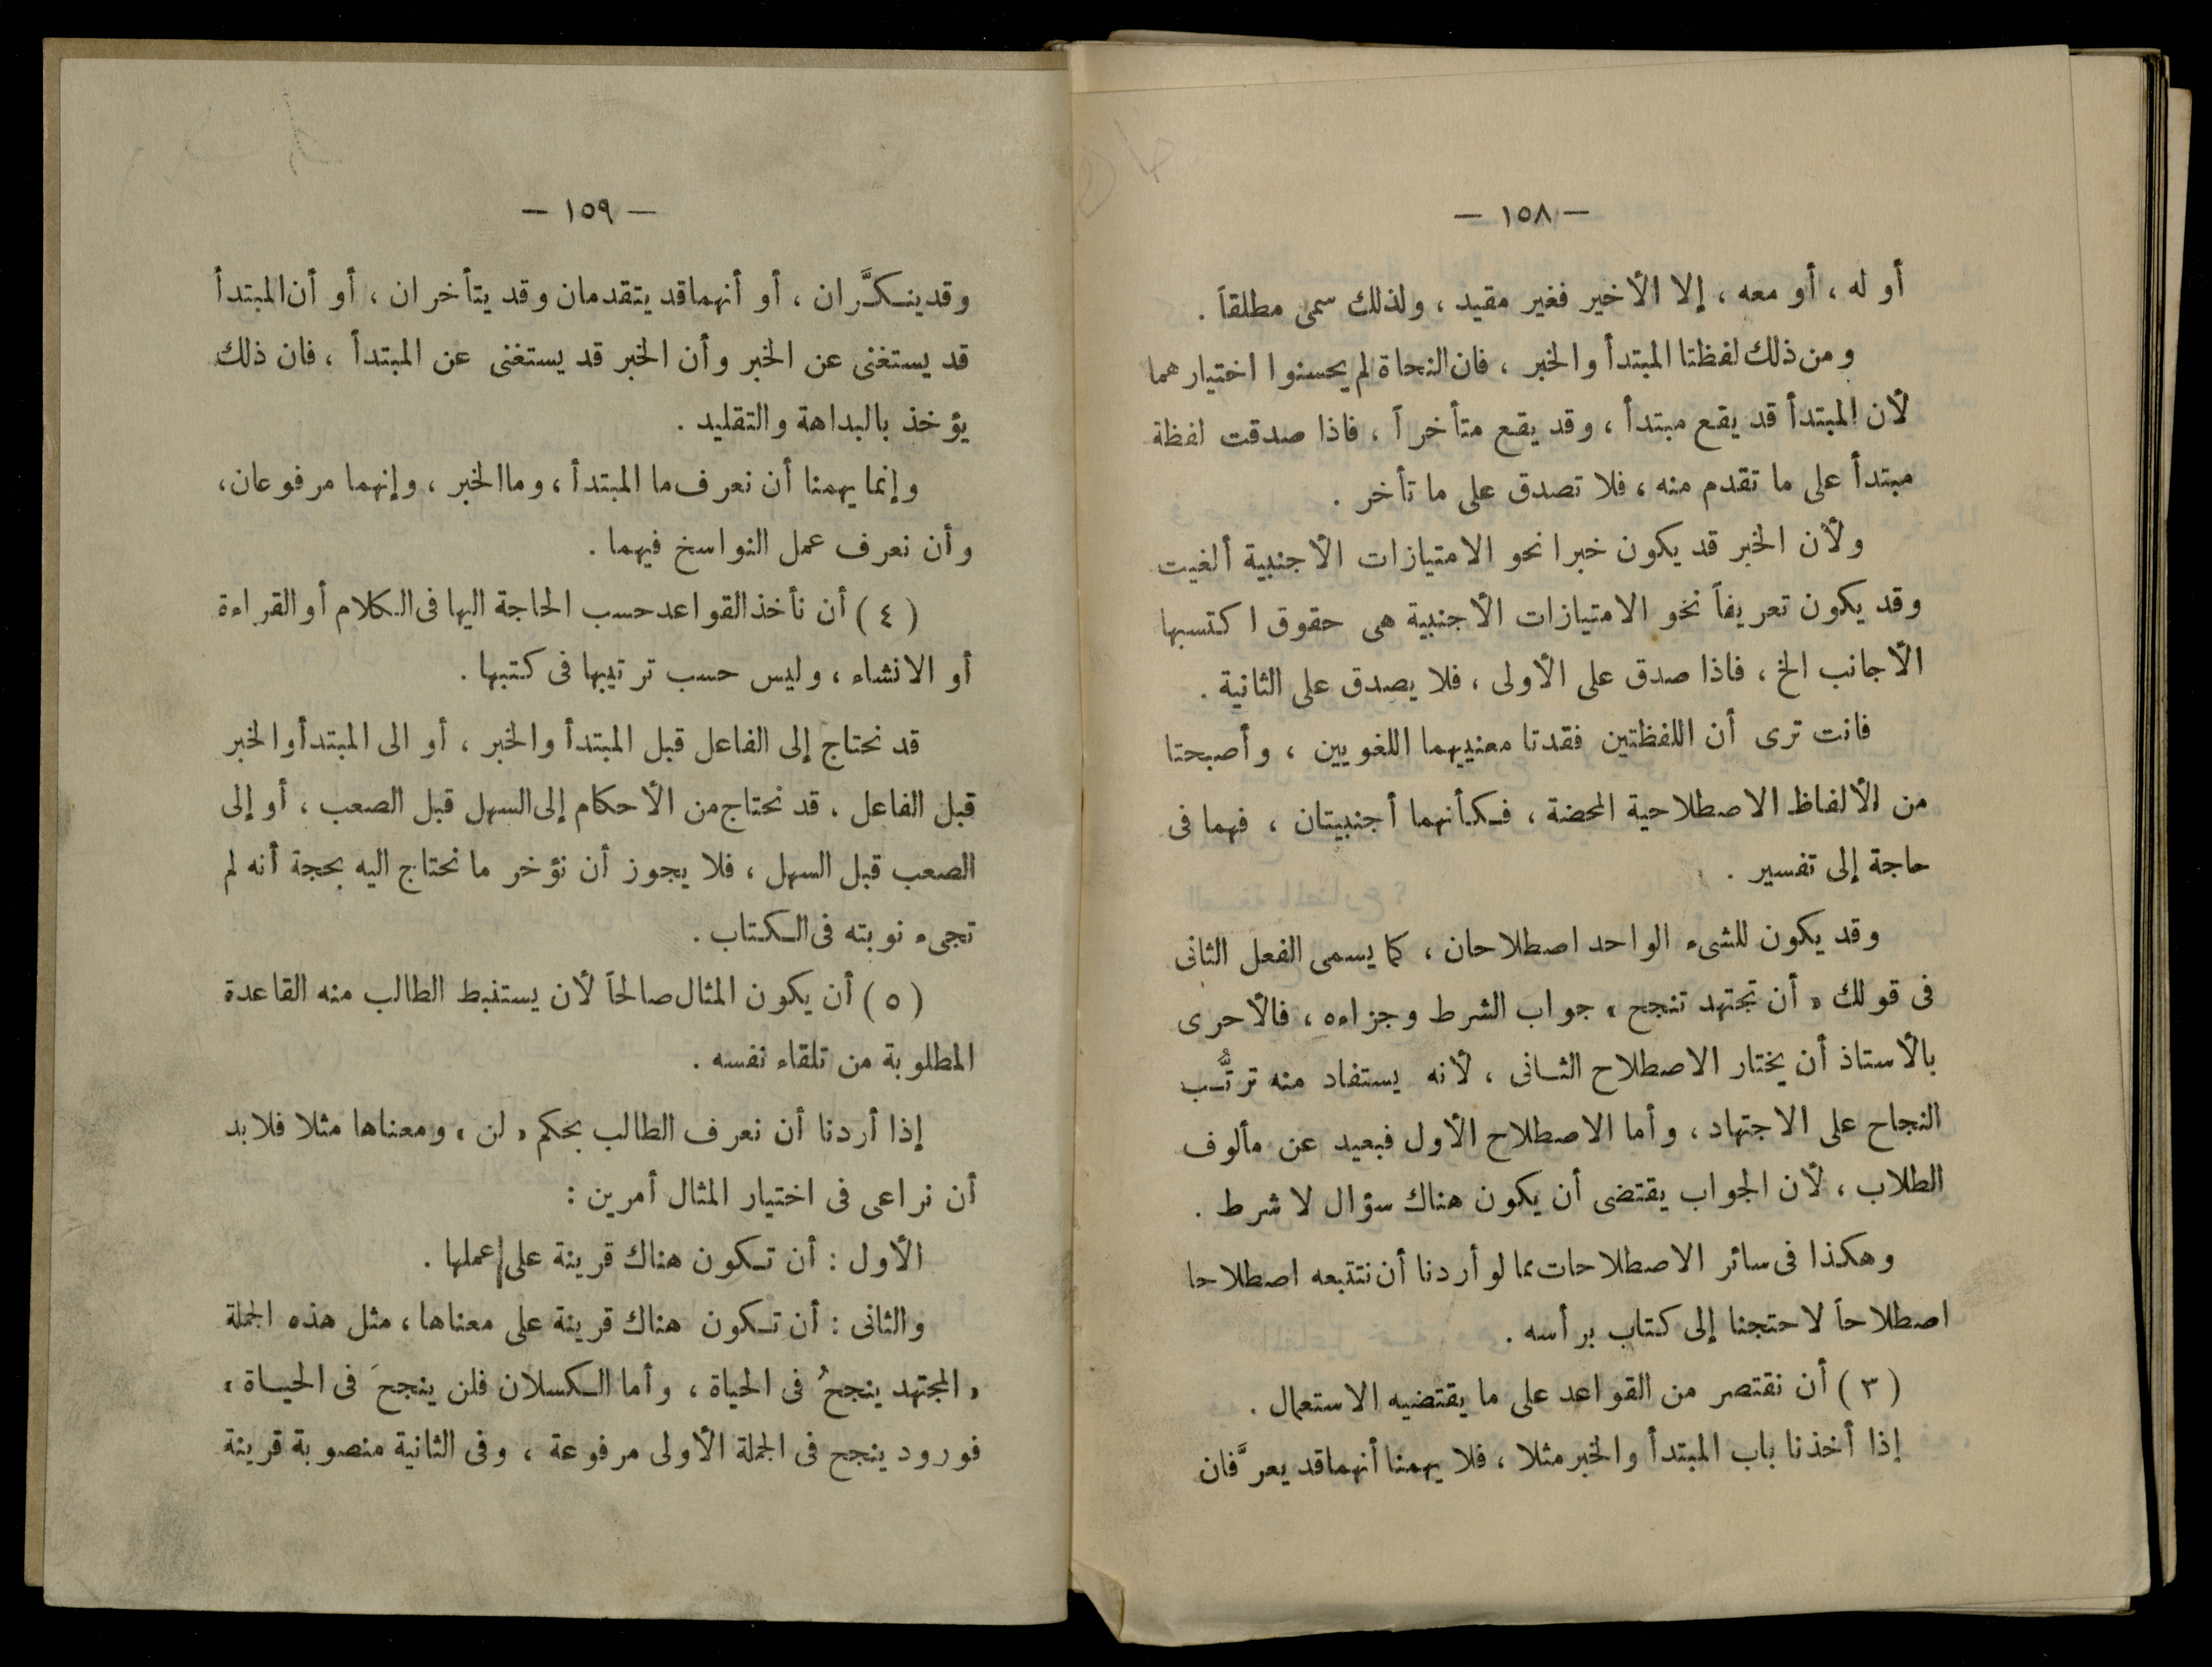 — ١٥٨ —
أو له ، أو معه ، إلا الأخير فغير مقيد ، ولذلك سمى مطلقاً .
ومن ذلك لفظتا المبتدأ والخبر ، فان النحاة لم يحسنوا اختيارهما
لأن المبتدأ قد يقع مبتدأ ، وقد يقع متأخراً ، فاذا صدقت لفظة
مبتدأ على ما تقدم منه ، فلا تصدق على ما تأخر .
ولأن الخبر قد يكون خبرا نحو الامتيازات الأجنبية ألغيت
وقد يكون تعريفاً نحو الامتيازات الأجنبية هى حقوق اكتسبها
الأجانب الخ ، فاذا صدق على الأولى ، فلا يصدق على الثانية .
فانت ترى أن اللفظتين فقدتا معنييهما اللغويين ، وأصبحتا
من الألفاظ الاصطلاحية المحضة ، فكأنهما أجنبيتان ، فهما فى
حاجة إلى تفسير .
وقد يكون للشىء الواحد اصطلاحان ، كما يسمى الفعل الثانى
فى قولك « أن تجتهد تنجح » جواب الشرط وجزاءه ، فالأحرى
بالأستاذ أن يختار الاصطلاح الثانى ، لأنه يستفاد منه ترتُّب
النجاح على الاجتهاد ، وأما الاصطلاح الأول فبعيد عن مألوف
الطلاب ، لأن الجواب يقتضى أن يكون هناك سؤال لا شرط .
وهكذا فى سائر الاصطلاحات مما لو أردنا أن نتتبعه اصطلاحا
اصطلاحاً لاحتجنا إلى كتاب برأسه .
( ٣ ) أن نقتصر من القواعد على ما يقتضيه الاستعمال .
إذا أخذنا باب المبتدأ والخبر مثلا ، فلا يهمنا أنهما قد يعرَّفان
— ١٥٩ —
وقد ينكَّران ، أو أنهما قد يتقدمان وقد يتأخران ، أو أن المبتدأ
قد يستغنى عن الخبر وأن الخبر قد يستغنى عن المبتدأ ، فان ذلك
يؤخذ بالبداهة والتقليد .
وإنما يهمنا أن نعرف ما المبتدأ ، وما الخبر ، وإنهما مرفوعان ،
وأن نعرف عمل النواسخ فيهما .
( ٤ ) أن نأخذ القواعد حسب الحاجة اليها فى الكلام أو القراءة
أو الانشاء ، وليس حسب ترتيبها فى كتبها .
قد نحتاج إلى الفاعل قبل المبتدأ والخبر ، أو الى المبتدأ والخبر
قبل الفاعل ، قد نحتاج من الأحكام إلى السهل قبل الصعب ، أو إلى
الصعب قبل السهل ، فلا يجوز أن نؤخر ما نحتاج اليه بحجة أنه لم
تجىء نوبته فى الكتاب .
( ٥ ) أن يكون المثال صالحاً لأن يستنبط الطالب منه القاعدة
المطلوبة من تلقاء نفسه .
إذا أردنا أن نعرف الطالب بحكم « لن » ومعناها مثلا فلا بد
أن نراعى فى اختيار المثال أمرين :
الأول : أن تكون هناك قرينة على عملها .
والثانى : أن تكون هناك قرينة على معناها ، مثل هذه الجملة
« المجتهد ينجحُ فى الحياة ، وأما الكسلان فلن ينجحَ فى الحياة »
فورود ينجح فى الجملة الأولى مرفوعة ، وفى الثانية منصوبة قرينة